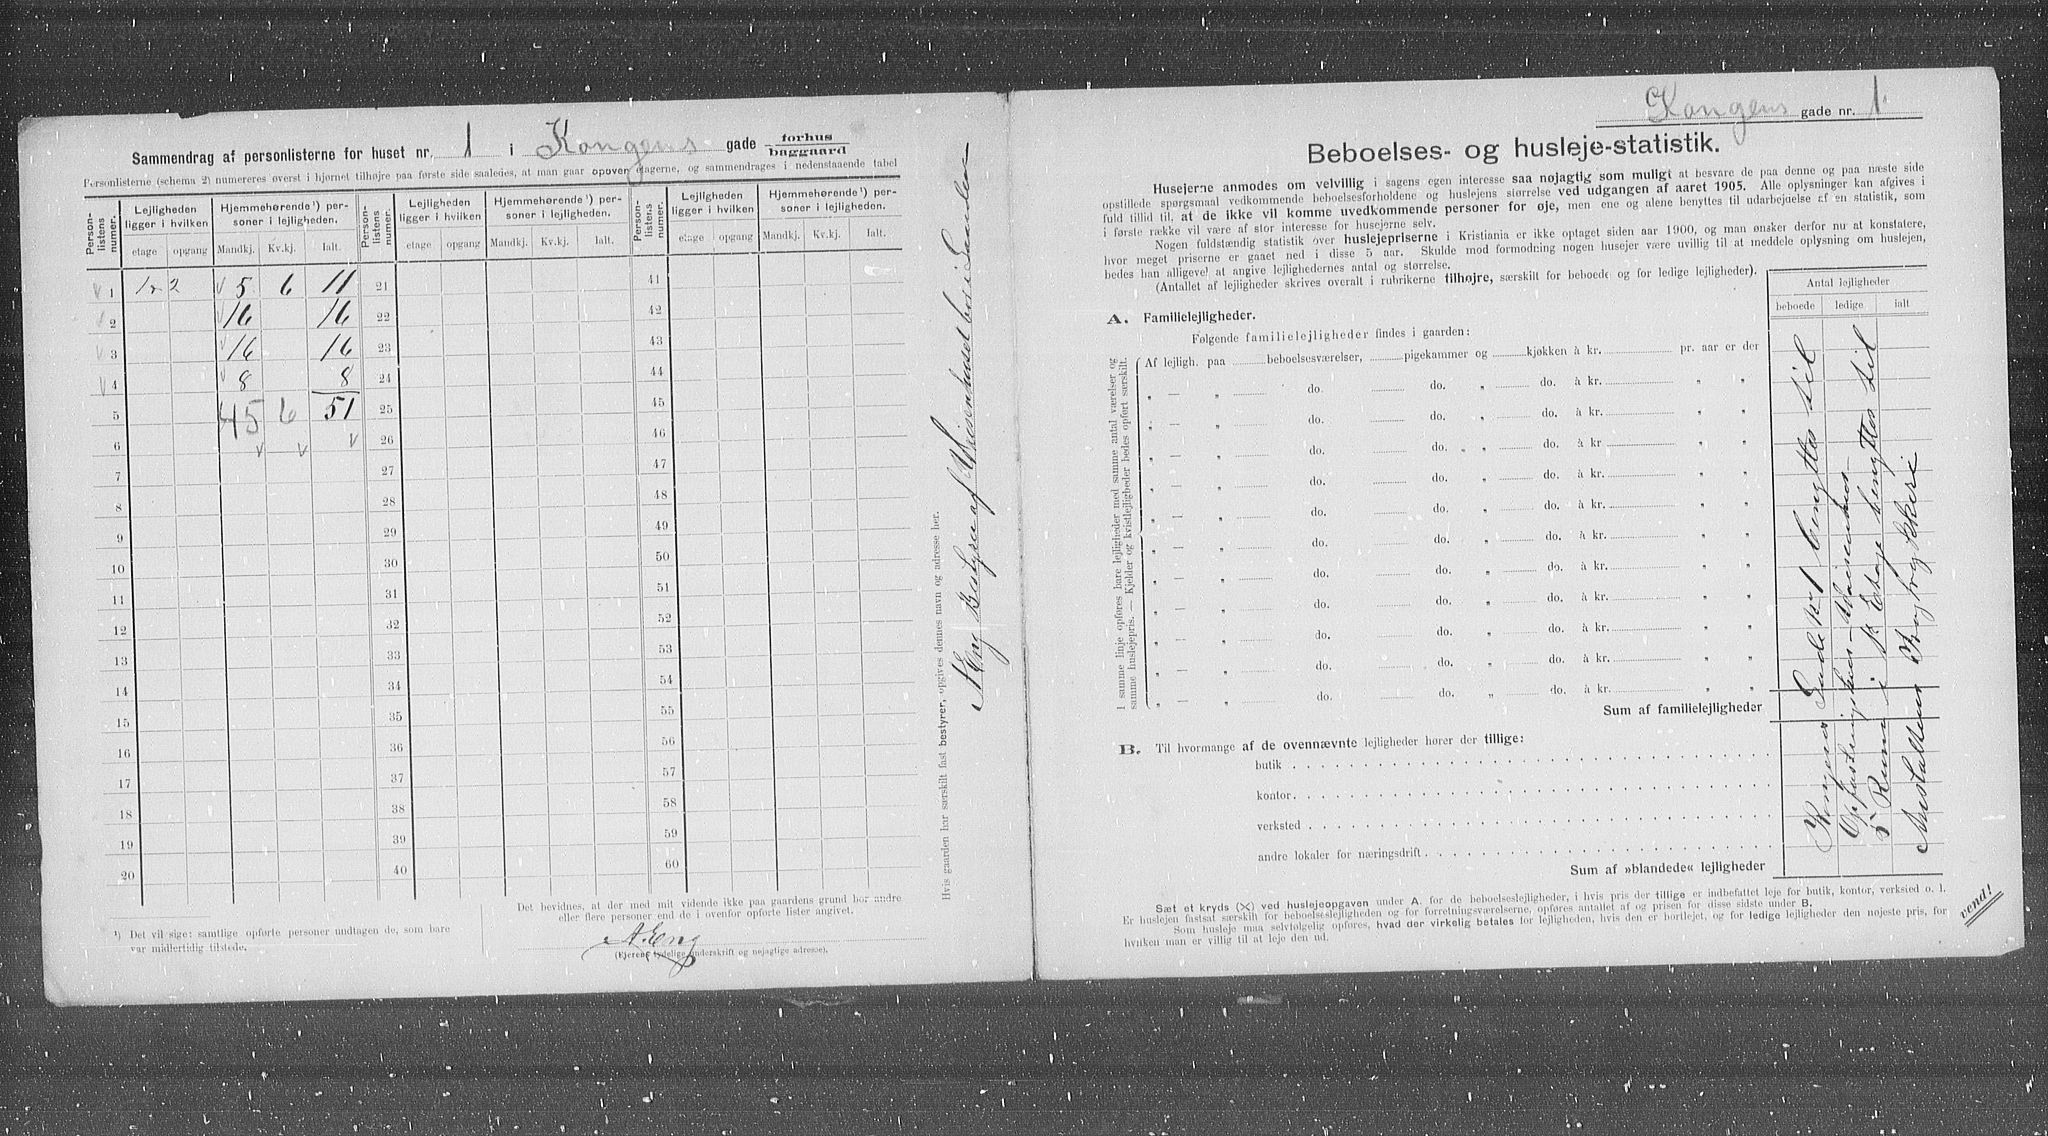 Sammendrag af personlisterne for huset nr. 1 i Kongens gade forhus baggaard
Personlisterne (schema 2) numereres øverst i hjørnet tilhøjre paa første side saaledes, at man gaar opover etagerne, og sammendrages i nedenstaaende tabel
Person-listens numer. Lejligheden ligger i hvilken Hjemmehørende¹) personer i lejligheden. Person-listens numer. Lejligheden ligger i hvilken Hjemmehørende¹) personer i lejligheden. Person-listens numer. Lejligheden ligger i hvilken Hjemmehørende¹) personer i lejligheden.
etage opgang Mandkj. Kv.kj. Ialt. etage opgang Mandkj. Kv.kj. Ialt. etage opgang Mandkj. Kv.kj. Ialt.
1 5 6 11 21 41
2 16 16 22 42
3 16 16 23 43
4 8 8 24 44
5 45 6 51 25 45
6 26 46
7 27 47
8 28 48
9 29 49
10 30 50
11 31 51
12 32 52
13 33 53
14 34 54
15 35 55
16 36 56
17 37 57
18 38 58
19 39 59
20 40 60
¹) Det vil sige: samtlige opførte personer undtagen de, som bare
var midlertidig tilstede.
Det bevidnes, at der med mit vidende ikke paa gaardens grund bor andre
eller flere personer end de i ovenfor opførte lister angivet.
A. Eng
(Ejerens tydelige underskrift og nejagtige adresse).
Hvis gaarden har særskilt fast bestyrer, opgives dennes navn og adresse her.
A. Eng Bestyrer af Waisenhuset bor i Anstalten
Kongens gade nr. 1.
Beboelses- og husleje-statistik.
Husejerne anmodes om velvillig i sagens egen interesse saa nøjagtig som muligt at besvare de paa denne og paa næste side
opstillede spørgsmaal vedkommende beboelsesforholdene og huslejens størrelse ved udgangen af aaret 1905. Alle oplysninger kan afgives i
fuld tillid til, at de ikke vil komme uvedkommende personer for øje, men ene og alene benyttes til udarbejdelse af en statistik, som
i første række vil være af stor interesse for husejerne selv.
Nogen fuldstændig statistik over huslejepriserne i Kristiania er ikke optaget siden aar 1900, og man ønsker derfor nu at konstatere,
hvor meget priserne er gaaet ned i disse 5 aar. Skulde mod formodning nogen husejer være uvillig til at meddele oplysning om huslejen,
bedes han alligevel at angive lejlighedernes antal og størrelse.
(Antallet af lejligheder skrives overalt i rubrikerne tilhøjre, særskilt for beboede og for ledige lejligheder).
Antal lejligheder
beboede ledige ialt
A. Familielejligheder.
Følgende familielejligheder findes i gaarden:
I samme linje opføres bare lejligheder med samme antal værelser og
samme huslejepris. — Kjelder og kvistlejligheder bedes opført særskilt.
Af lejligh. paa beboelsesværelser, pigekammer og kjøkken à kr. pr. aar er der
„ — „ do. do. „ do. à kr. „ „
„ — „ do. do. „ do. à kr. „ „
„ — „ do. do. „ do. à kr. „ „
„ — „ do. do. „ do. à kr. „ „
„ — „ do. do. „ do. à kr. „ „
„ — „ do. do. „ do. à kr. „ „
„ — „ do. do. „ do. à kr. „ „
„ — „ do. do. „ do. à kr. „ „
„ — „ do. do. „ do. à kr. „ „
„ — „ do. do. „ do. à kr. „ „
„ — „ do. do. „ do. à kr. „ „
Sum af familielejligheder
B. Til hvormange af de ovennævnte lejligheder hører der tillige:
butik
kontor
verksted
andre lokaler for næringsdrift
Sum af »blandede« lejligheder
Kongens Gade No 1 benyttes til
Opfostringshus – Waisenhus –
5 Rum i 1ste Etage benyttes til
Anstaltens Bogtrykkeri
Sæt et kryds (X) ved huslejeopgaven under A. for de beboelseslejligheder, i hvis pris der tillige er indbefattet leje for butik, kontor, verksted o. l.
Er huslejen fastsat særskilt for beboelseslejligheden og for forretningsværelserne, opføres antallet af og prisen for disse sidste under B.
Som husleje maa selvfølgelig opføres, hvad der virkelig betales for lejligheden, hvis den er bortlejet, og for ledige lejligheder den nøjeste pris, for
hvilken man er villig til at leje den ud.
vend!